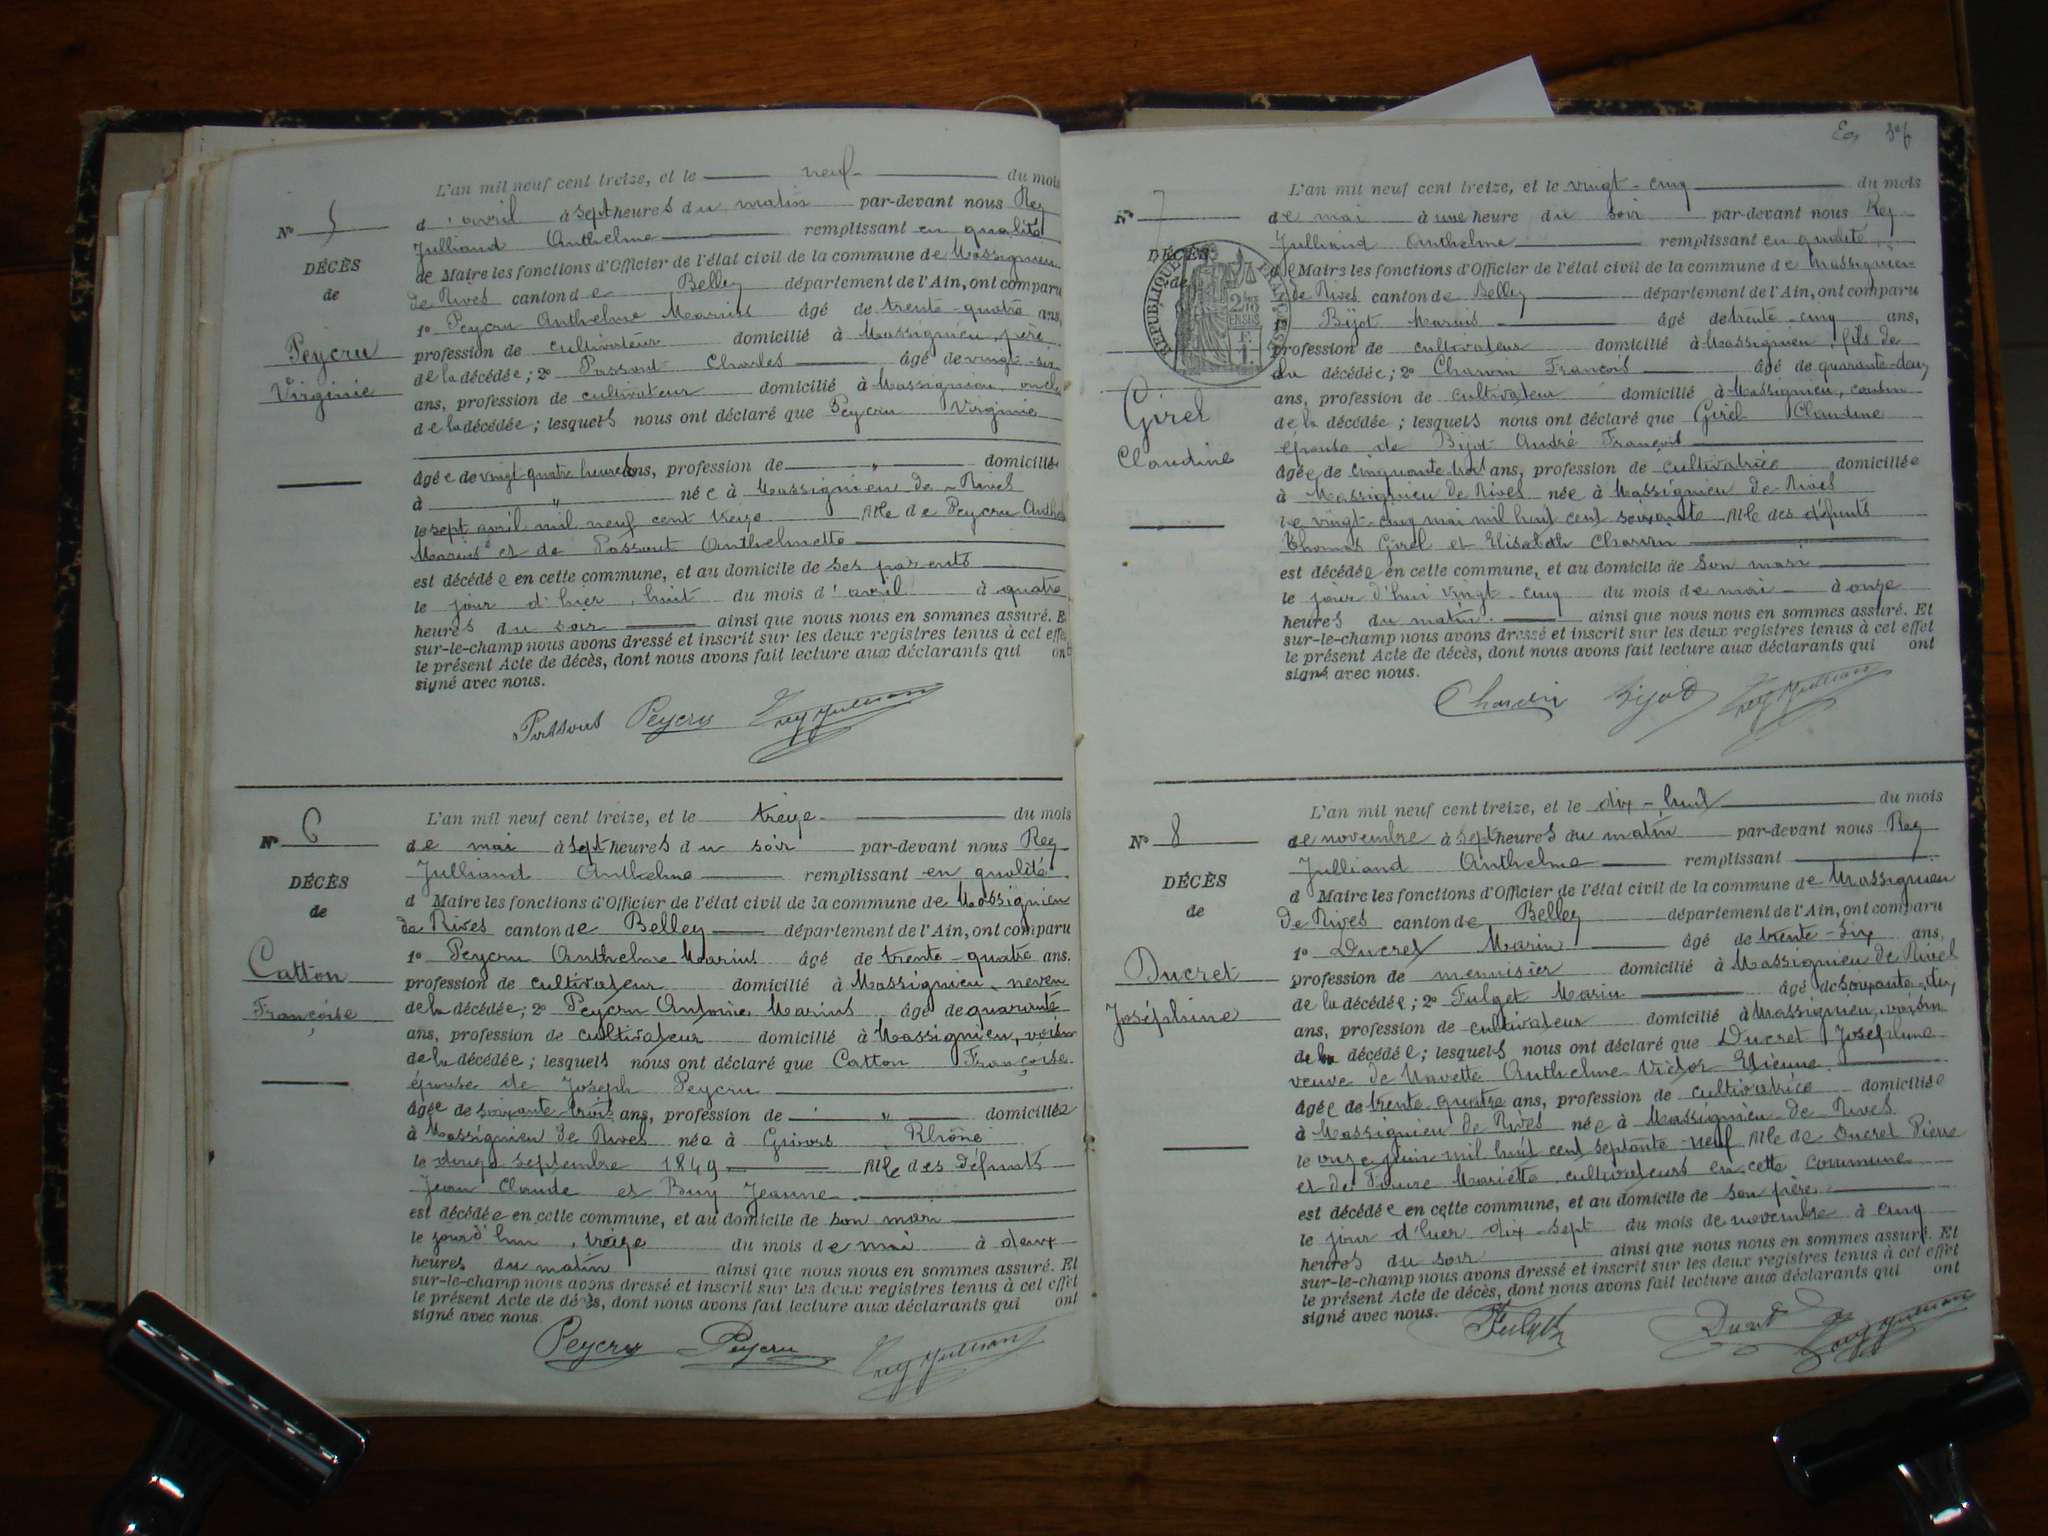 L'an mil neuf cent treize, et le neuf du mois
No 5
d'avril à sept heures du matin par-devant nous Rey
Julliand Anthelme remplissant en qualité
DÉCÈS
de Maire les fonctions d'Officier de l'état civil de la commune de Massignieu
de
de Rives canton de Belley département de l'Ain, ont comparu
1o Peycru Anthelme Marius âgé de trente-quatre ans,
Peycru
profession de cultivateur domicilié à Massignieu, père
Virginie
de la décédée; 2o Passout Charles âgé de vingt-six
ans, profession de cultivateur domicilié à Massignieu oncle
de la décédée; lesquels nous ont déclaré que Peycru Virginie
âgée de vingt-quatre heures ans, profession de " domiciliée
à " née à Massignieu-de-Rives
le sept avril mil neuf cent treize fille de Peycru Anthe
Marius et de Passout Anthelmette
est décédée en cette commune, et au domicile de ses parents
le jour d'hier, huit du mois d'avril à quatre
heures du soir ainsi que nous nous en sommes assuré. E
sur-le-champ nous avons dressé et inscrit sur les deux registres tenus à cet effe
le présent Acte de décès, dont nous avons fait lecture aux déclarants qui ont
signé avec nous.
Passout Peycru Rey Julliand
L'an mil neuf cent treize, et le treize du mois
No 6
de mai à sept heures du soir par-devant nous Rey
Julliand Anthelme remplissant en qualité
DÉCÈS
d Maire les fonctions d'Officier de l'état civil de la commune de Massignieu
de
de Rives canton de Belley département de l'Ain, ont comparu
1o Peycru Anthelme Marius âgé de trente-quatre ans.
Catton
profession de cultivateur domicilié à Massignieu, neveu
Françoise
de la décédée; 2o Peycru Antoine Marius, âgé de quarante
ans, profession de cultivateur domicilié à Massignieu, voisin
de la décédée; lesquels nous ont déclaré que Catton Françoise
épouse de Joseph Peycru
âgée de soixante-trois ans, profession de " domiciliée
à Massignieu de Rives née à Givors Rhône
le douze septembre 1849 fille des défunts
Jean Claude et Buy Jeanne
est décédée en cette commune, et au domicile de son mari
le jour d'hui, treize du mois de mai à deux
heures du matin ainsi que nous nous en sommes assuré. Et
sur-le-champ nous avons dressé et inscrit sur les deux registres tenus à cet effet
le présent Acte de décès, dont nous avons fait lecture aux déclarants qui ont
signé avec nous.
Peycru Peycru Rey Julliand
L'an mil neuf cent treize, et le vingt-cinq du mois
No 7
de mai à une heure du soir par-devant nous Rey
Julliand Anthelme remplissant en qualité
DÉCÈS
de Maire les fonctions d'Officier de l'état civil de la commune de Massignieu
de
de Rives canton de Belley département de l'Ain, ont comparu
RÉPUBLIQUE FRANÇAISE
1o Bijot Marius âgé de trente-cinq ans,
profession de cultivateur domicilié à Massignieu, fils de
la décédée; 2o Charvin François âgé de quarante-deux
Girel
ans, profession de cultivateur domicilié à Massignieu, cousin
de la décédée; lesquels nous ont déclaré que Girel Claudine
épouse de Bijot André François
Claudine
âgée de cinquante trois ans, profession de cultivatrice domiciliée
à Massignieu de Rives née à Massignieu de Rives
le vingt-cinq mai mil huit cent soixante fille des défunts
Thomas Girel et Elisabeth Charvin
est décédée en cette commune, et au domicile de son mari
le jour d'hui vingt-cinq du mois de mai à onze
heures du matin. ainsi que nous nous en sommes assuré. Et
sur-le-champ nous avons dressé et inscrit sur les deux registres tenus à cet effet
le présent Acte de décès, dont nous avons fait lecture aux déclarants qui ont
signé avec nous.
Charvin Bijot Rey Julliand
L'an mil neuf cent treize, et le dix-huit du mois
No 8
de novembre à sept heures du matin par-devant nous Rey
Julliand Anthelme remplissant
DÉCÈS
d Maire les fonctions d'Officier de l'état civil de la commune de Massignieu
de
de Rives canton de Belley département de l'Ain, ont comparu
1o Ducret Marin âgé de trente-six ans,
Ducret
profession de menuisier domicilié à Massignieu de Rives
de la décédée; 2o Fulget Marin âgé de soixante-dix
Joséphine
ans, profession de cultivateur domicilié à Massignieu, voisin
de la décédée; lesquels nous ont déclaré que Ducret Joséphine
veuve de Anthelme Victor Etienne
âgée de trente quatre ans, profession de cultivatrice domiciliée
à Massignieu de Rives née à Massignieu-de-Rives
le onze juin mil huit cent septante-neuf fille de Ducret Pierre
et de Mariette, cultivateurs en cette commune
est décédée en cette commune, et au domicile de son père
le jour d'hier dix-sept du mois de novembre à cinq
heures du soir ainsi que nous nous en sommes assuré. Et
sur-le-champ nous avons dressé et inscrit sur les deux registres tenus à cet effet
le présent Acte de décès, dont nous avons fait lecture aux déclarants qui ont
signé avec nous.
Fulget Ducret Rey Julliand